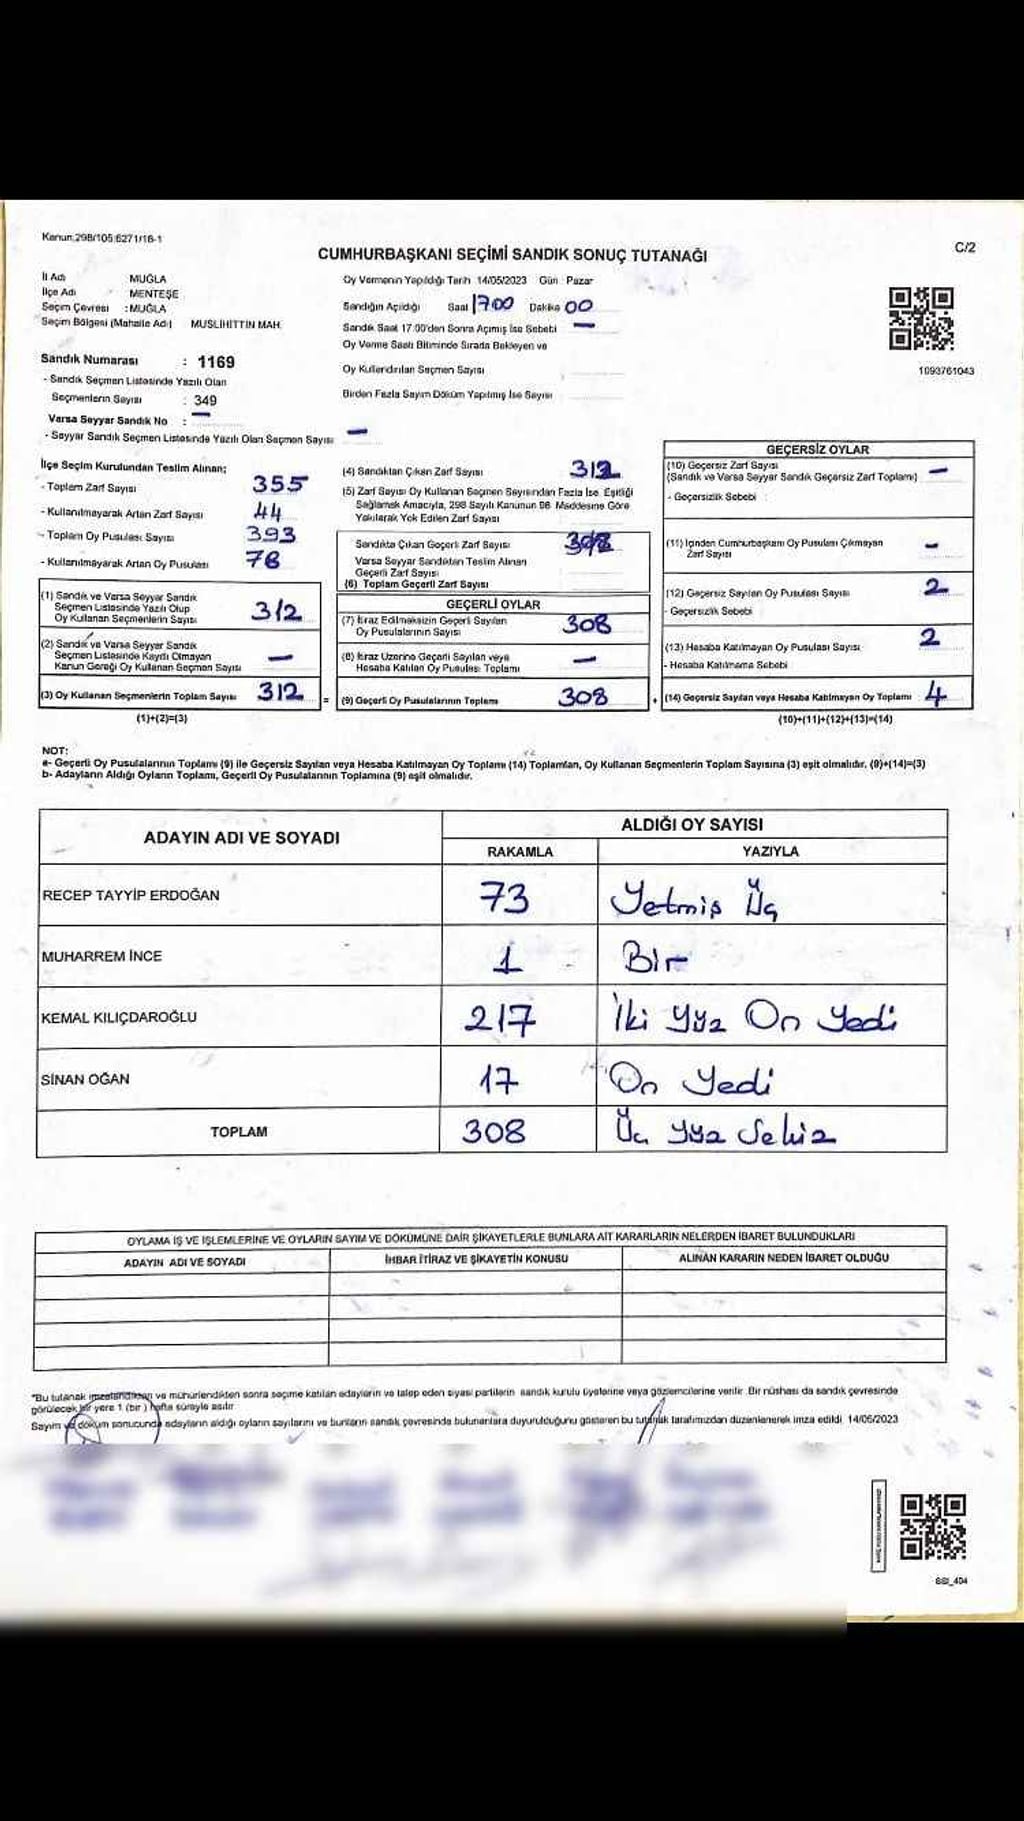 Kanun:298/105;6271/16-1
C/2
CUMHURBAŞKANI SEÇİMİ SANDIK SONUÇ TUTANAĞI
İl Adı MUĞLA
İlçe Adı : MENTEŞE
Seçim Çevresi : MUĞLA
Seçim Bölgesi (Mahalle Adı) MUSLİHİTTİN MAH.
Sandık Numarası : 1169
- Sandık Seçmen Listesinde Yazılı Olan
Seçmenlerin Sayısı : 349
Varsa Seyyar Sandık No : -
- Seyyar Sandık Seçmen Listesinde Yazılı Olan Seçmen Sayısı -
Oy Vermenin Yapıldığı Tarih 14/05/2023 Gün : Pazar
Sandığın Açıldığı Saat 1700 Dakika 00
Sandık Saat 17:00'den Sonra Açımış İse Sebebi -
Oy Verme Saati Bitiminde Sırada Bekleyen ve
Oy Kullandırılan Seçmen Sayısı
Birden Fazla Sayım Döküm Yapılmış İse Sayısı
1093761043
İlçe Seçim Kurulundan Teslim Alınan;
- Toplam Zarf Sayısı 355
- Kullanılmayarak Artan Zarf Sayısı 44
- Toplam Oy Pusulası Sayısı 393
- Kullanılmayarak Artan Oy Pusulası 78
(1) Sandık ve Varsa Seyyar Sandık
Seçmen Listesinde Yazılı Olup
Oy Kullanan Seçmenlerin Sayısı 312
(2) Sandık ve Varsa Seyyar Sandık
Seçmen Listesinde Kaydı Olmayan
Kanun Gereği Oy Kullanan Seçmen Sayısı -
(3) Oy Kullanan Seçmenlerin Toplam Sayısı 312 =
(1)+(2)=(3)
(4) Sandıktan Çıkan Zarf Sayısı 312
(5) Zarf Sayısı Oy Kullanan Seçmen Sayısından Fazla İse, Eşitliği
Sağlamak Amacıyla, 298 Sayılı Kanunun 98. Maddesine Göre
Yakılarak Yok Edilen Zarf Sayısı
Sandıkta Çıkan Geçerli Zarf Sayısı
Varsa Seyyar Sandıktan Teslim Alınan
Geçerli Zarf Sayısı
(6) Toplam Geçerli Zarf Sayısı
GEÇERLİ OYLAR
(7) İtiraz Edilmeksizin Geçerli Sayılan
Oy Pusulalarının Sayısı 308
(8) İtiraz Üzerine Geçerli Sayılan veya
Hesaba Katılan Oy Pusulası Toplamı -
(9) Geçerli Oy Pusulalarının Toplamı 308 +
GEÇERSİZ OYLAR
(10) Geçersiz Zarf Sayısı
(Sandık ve Varsa Seyyar Sandık Geçersiz Zarf Toplamı) -
- Geçersizlik Sebebi :
(11) İçinden Cumhurbaşkanı Oy Pusulası Çıkmayan
Zarf Sayısı -
(12) Geçersiz Sayılan Oy Pusulası Sayısı 2
- Geçersizlik Sebebi
(13) Hesaba Katılmayan Oy Pusulası Sayısı 2
- Hesaba Katılmama Sebebi
(14) Geçersiz Sayılan veya Hesaba Katılmayan Oy Toplamı 4
(10)+(11)+(12)+(13)=(14)
NOT:
a- Geçerli Oy Pusulalarının Toplamı (9) ile Geçersiz Sayılan veya Hesaba Katılmayan Oy Toplamı (14) Toplamları, Oy Kullanan Seçmenlerin Toplam Sayısına (3) eşit olmalıdır. (9)+(14)=(3)
b- Adayların Aldığı Oyların Toplamı, Geçerli Oy Pusulalarının Toplamına (9) eşit olmalıdır.
ADAYIN ADI VE SOYADI
ALDIĞI OY SAYISI
RAKAMLA YAZIYLA
RECEP TAYYİP ERDOĞAN 73 Yetmiş Üç
MUHARREM İNCE 1 Bir
KEMAL KILIÇDAROĞLU 217 İki Yüz On Yedi
SİNAN OĞAN 17 On Yedi
TOPLAM 308 Üç Yüz Sekiz
OYLAMA İŞ VE İŞLEMLERİNE VE OYLARIN SAYIM VE DÖKÜMÜNE DAİR ŞİKAYETLERLE BUNLARA AİT KARARLARIN NELERDEN İBARET BULUNDUKLARI
ADAYIN ADI VE SOYADI İHBAR İTİRAZ VE ŞİKAYETİN KONUSU ALINAN KARARIN NEDEN İBARET OLDUĞU
*Bu tutanak imzalandıktan ve mühürlendikten sonra seçime katılan adayların ve talep eden siyasi partilerin sandık kurulu üyelerine veya gözlemcilerine verilir. Bir nüshası da sandık çevresinde
görülecek bir yere 1 (bir) hafta süreyle asılır.
Sayım ve döküm sonucunda adayların aldığı oyların sayılarını ve bunların sandık çevresinde bulunanlara duyurulduğunu gösteren bu tutanak tarafımızdan düzenlenerek imza edildi. 14/05/2023
SSI_404